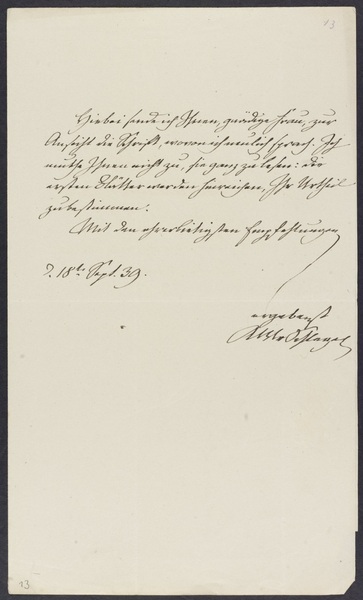 13
Hiebei sende ich Ihnen, gnädige Frau, zur
Ansicht die Schrift, wovon ich neulich sprach. Ich
muthe Ihnen nicht zu, sie ganz zu lesen: die
ersten Blätter werden hinreichen, Ihr Urtheil
zu bestimmen.
Mit den ehrerbietigsten Empfehlungen
d. 18ten Sept. 39.
ergebenst
AWvSchlegel
13